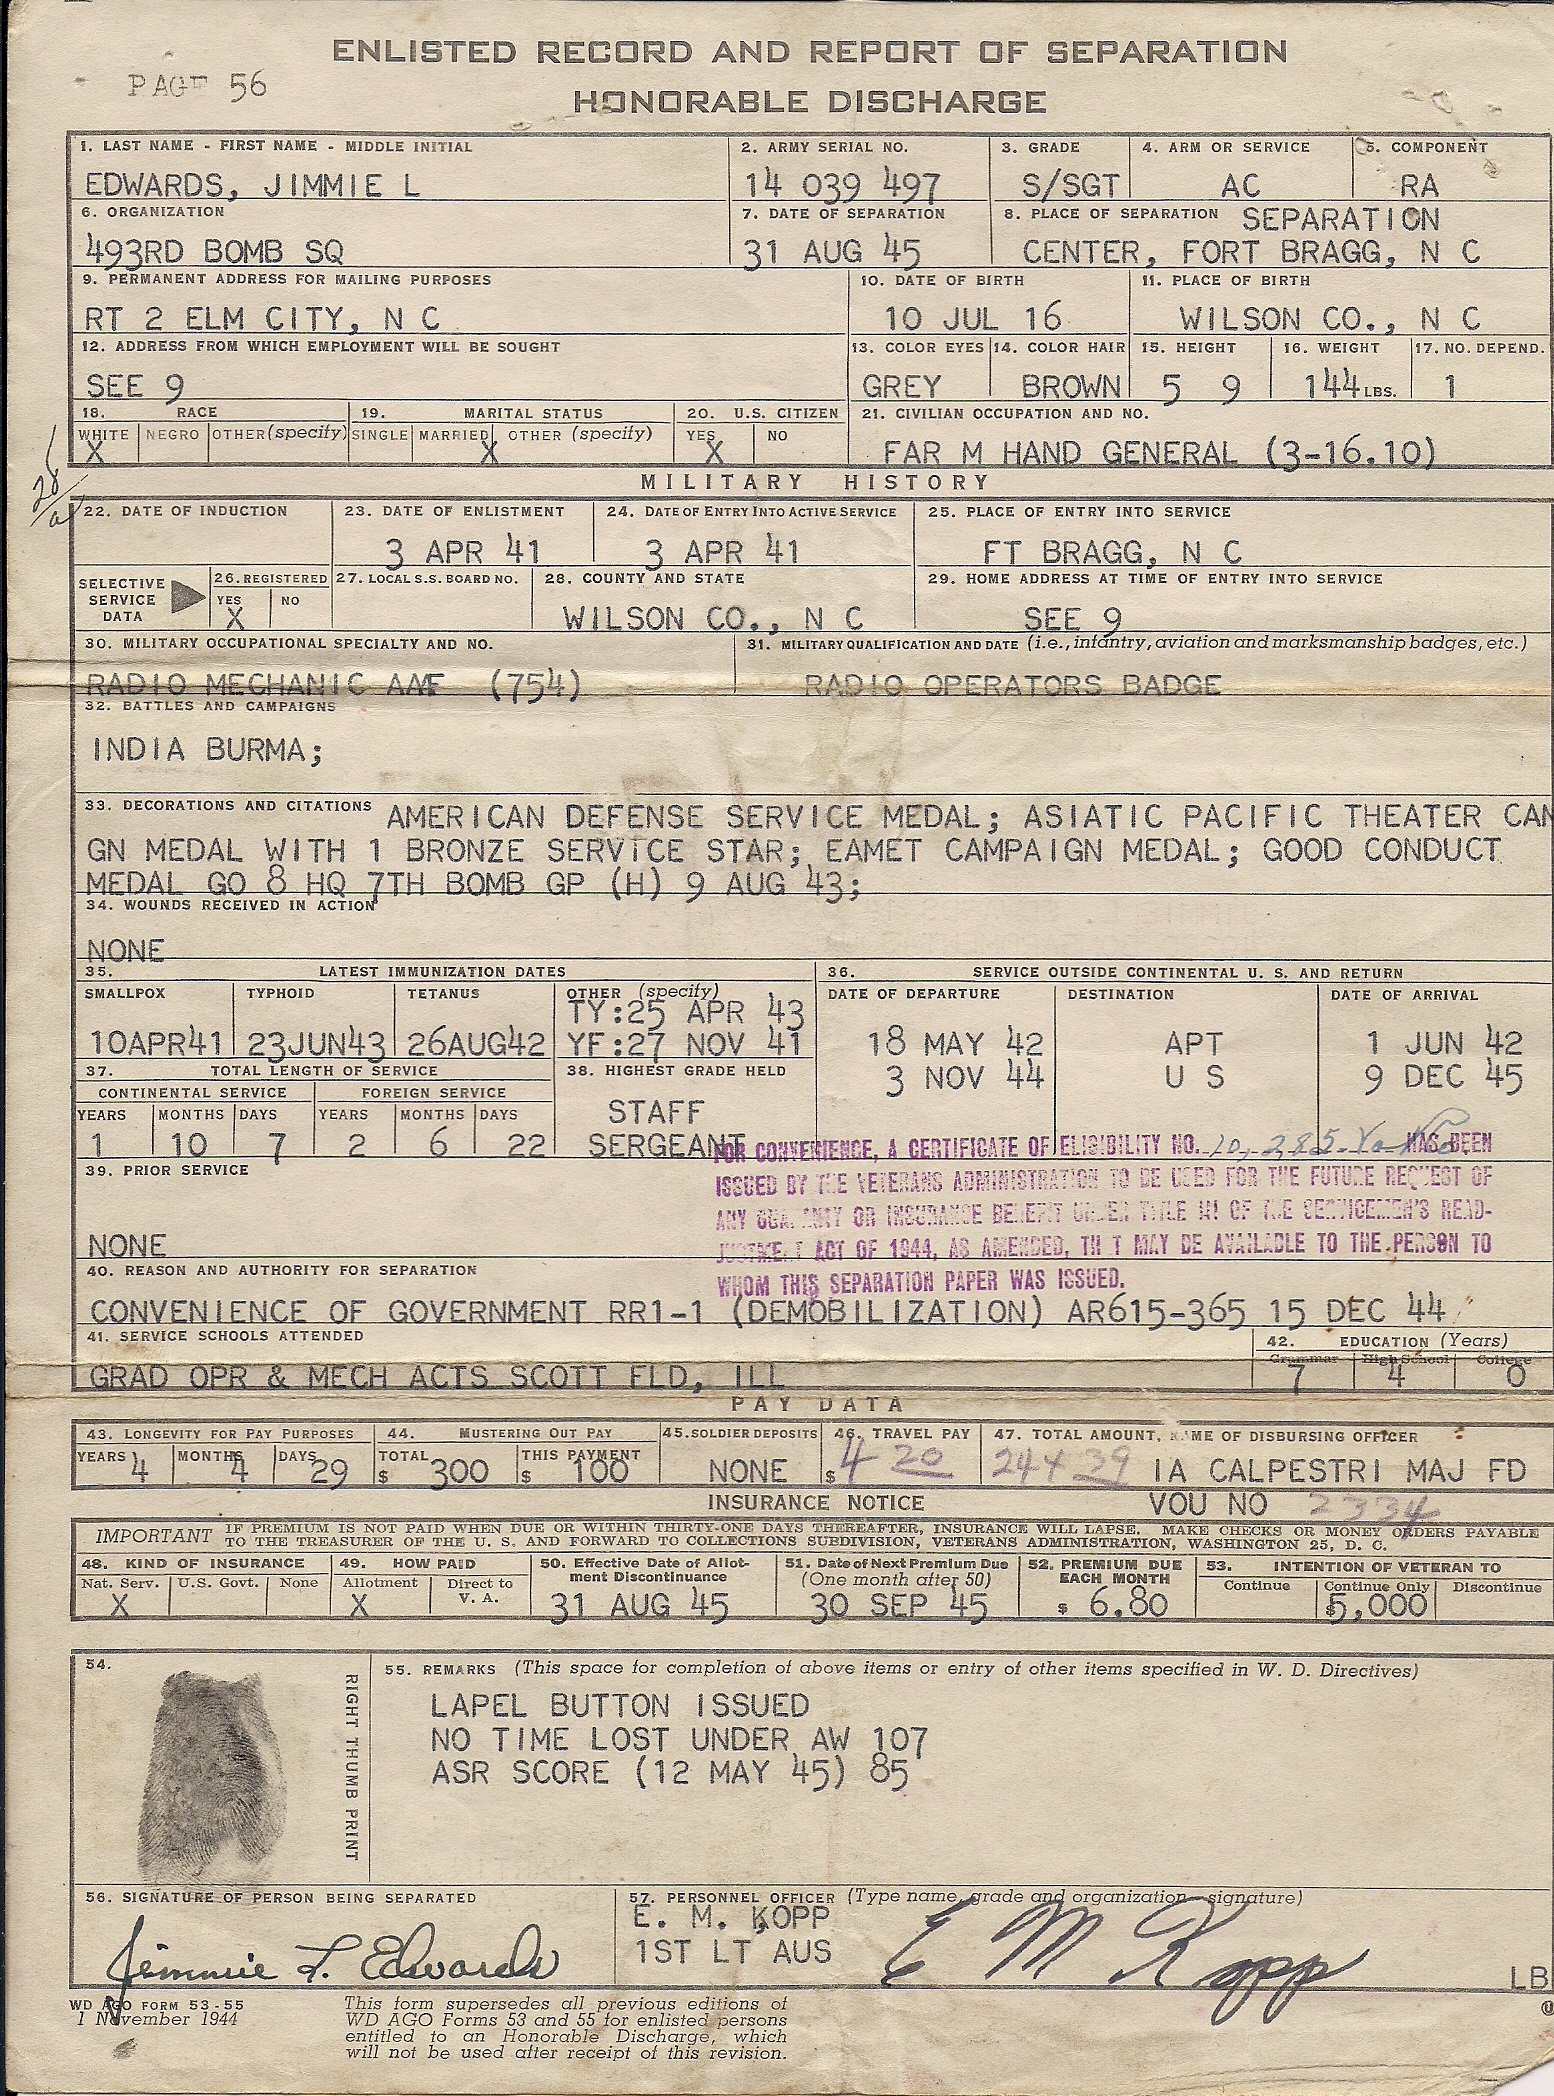 ENLISTED RECORD AND REPORT OF SEPARATION
PAGE 56
HONORABLE DISCHARGE
1. LAST NAME - FIRST NAME - MIDDLE INITIAL 2. ARMY SERIAL NO. 3. GRADE 4. ARM OR SERVICE 5. COMPONENT
EDWARDS, JIMMIE L 14 039 497 S/SGT AC RA
6. ORGANIZATION 7. DATE OF SEPARATION 8. PLACE OF SEPARATION SEPARATION
493RD BOMB SQ 31 AUG 45 CENTER, FORT BRAGG, N C
9. PERMANENT ADDRESS FOR MAILING PURPOSES 10. DATE OF BIRTH 11. PLACE OF BIRTH
RT 2 ELM CITY, N C 10 JUL 16 WILSON CO., N C
12. ADDRESS FROM WHICH EMPLOYMENT WILL BE SOUGHT 13. COLOR EYES 14. COLOR HAIR 15. HEIGHT 16. WEIGHT 17. NO. DEPEND.
SEE 9 GREY BROWN 5 9 144 LBS. 1
18. RACE 19. MARITAL STATUS 20. U.S. CITIZEN 21. CIVILIAN OCCUPATION AND NO.
WHITE NEGRO OTHER (specify) SINGLE MARRIED OTHER (specify) YES NO
X X X FAR M HAND GENERAL (3-16.10)
MILITARY HISTORY
22. DATE OF INDUCTION 23. DATE OF ENLISTMENT 24. DATE OF ENTRY INTO ACTIVE SERVICE 25. PLACE OF ENTRY INTO SERVICE
3 APR 41 3 APR 41 FT BRAGG, N C
SELECTIVE SERVICE DATA 26. REGISTERED 27. LOCAL S.S. BOARD NO. 28. COUNTY AND STATE 29. HOME ADDRESS AT TIME OF ENTRY INTO SERVICE
YES NO
X WILSON CO., N C SEE 9
30. MILITARY OCCUPATIONAL SPECIALTY AND NO. 31. MILITARY QUALIFICATION AND DATE (i.e., infantry, aviation and marksmanship badges, etc.)
RADIO MECHANIC AAF (754) RADIO OPERATORS BADGE
32. BATTLES AND CAMPAIGNS
INDIA BURMA;
33. DECORATIONS AND CITATIONS AMERICAN DEFENSE SERVICE MEDAL; ASIATIC PACIFIC THEATER CAM
GN MEDAL WITH 1 BRONZE SERVICE STAR; EAMET CAMPAIGN MEDAL; GOOD CONDUCT
MEDAL GO 8 HQ 7TH BOMB GP (H) 9 AUG 43;
34. WOUNDS RECEIVED IN ACTION
NONE
35. LATEST IMMUNIZATION DATES 36. SERVICE OUTSIDE CONTINENTAL U. S. AND RETURN
SMALLPOX TYPHOID TETANUS OTHER (specify) DATE OF DEPARTURE DESTINATION DATE OF ARRIVAL
TY:25 APR 43
10APR41 23JUN43 26AUG42 YF:27 NOV 41 18 MAY 42 APT 1 JUN 42
37. TOTAL LENGTH OF SERVICE 38. HIGHEST GRADE HELD 3 NOV 44 U S 9 DEC 45
CONTINENTAL SERVICE FOREIGN SERVICE
YEARS MONTHS DAYS YEARS MONTHS DAYS STAFF
1 10 7 2 6 22 SERGEANT
FOR CONVENIENCE, A CERTIFICATE OF ELIGIBILITY NO. HAS BEEN
39. PRIOR SERVICE
ISSUED BY THE VETERANS ADMINISTRATION TO BE USED FOR THE FUTURE REQUEST OF
ANY GUARANTY OR INSURANCE BENEFIT UNDER TITLE III OF THE SERVICEMEN'S READ-
NONE JUSTMENT ACT OF 1944, AS AMENDED, TH T MAY BE AVAILABLE TO THE PERSON TO
40. REASON AND AUTHORITY FOR SEPARATION WHOM THIS SEPARATION PAPER WAS ISSUED.
CONVENIENCE OF GOVERNMENT RR1-1 (DEMOBILIZATION) AR615-365 15 DEC 44
41. SERVICE SCHOOLS ATTENDED 42. EDUCATION (Years)
Grammar High School College
GRAD OPR & MECH ACTS SCOTT FLD, ILL 7 4 0
PAY DATA
43. LONGEVITY FOR PAY PURPOSES 44. MUSTERING OUT PAY 45. SOLDIER DEPOSITS 46. TRAVEL PAY 47. TOTAL AMOUNT, NAME OF DISBURSING OFFICER
YEARS MONTHS DAYS TOTAL THIS PAYMENT
4 4 29 $ 300 $ 100 NONE $ 4 20 244 39 IA CALPESTRI MAJ FD
INSURANCE NOTICE VOU NO 2334
IMPORTANT IF PREMIUM IS NOT PAID WHEN DUE OR WITHIN THIRTY-ONE DAYS THEREAFTER, INSURANCE WILL LAPSE. MAKE CHECKS OR MONEY ORDERS PAYABLE
TO THE TREASURER OF THE U. S. AND FORWARD TO COLLECTIONS SUBDIVISION, VETERANS ADMINISTRATION, WASHINGTON 25, D. C.
48. KIND OF INSURANCE 49. HOW PAID 50. Effective Date of Allotment Discontinuance 51. Date of Next Premium Due (One month after 50) 52. PREMIUM DUE EACH MONTH 53. INTENTION OF VETERAN TO
Nat. Serv. U.S. Govt. None Allotment Direct to V. A. Continue Continue Only Discontinue
X X 31 AUG 45 30 SEP 45 $ 6.80 $5,000
54. RIGHT THUMB PRINT
55. REMARKS (This space for completion of above items or entry of other items specified in W. D. Directives)
LAPEL BUTTON ISSUED
NO TIME LOST UNDER AW 107
ASR SCORE (12 MAY 45) 85
56. SIGNATURE OF PERSON BEING SEPARATED 57. PERSONNEL OFFICER (Type name, grade and organization - signature)
E. M. KOPP
1ST LT AUS
Jimmie L. Edwards E M Kopp
LB
WD AGO FORM 53-55
1 November 1944
This form supersedes all previous editions of
WD AGO Forms 53 and 55 for enlisted persons
entitled to an Honorable Discharge, which
will not be used after receipt of this revision.